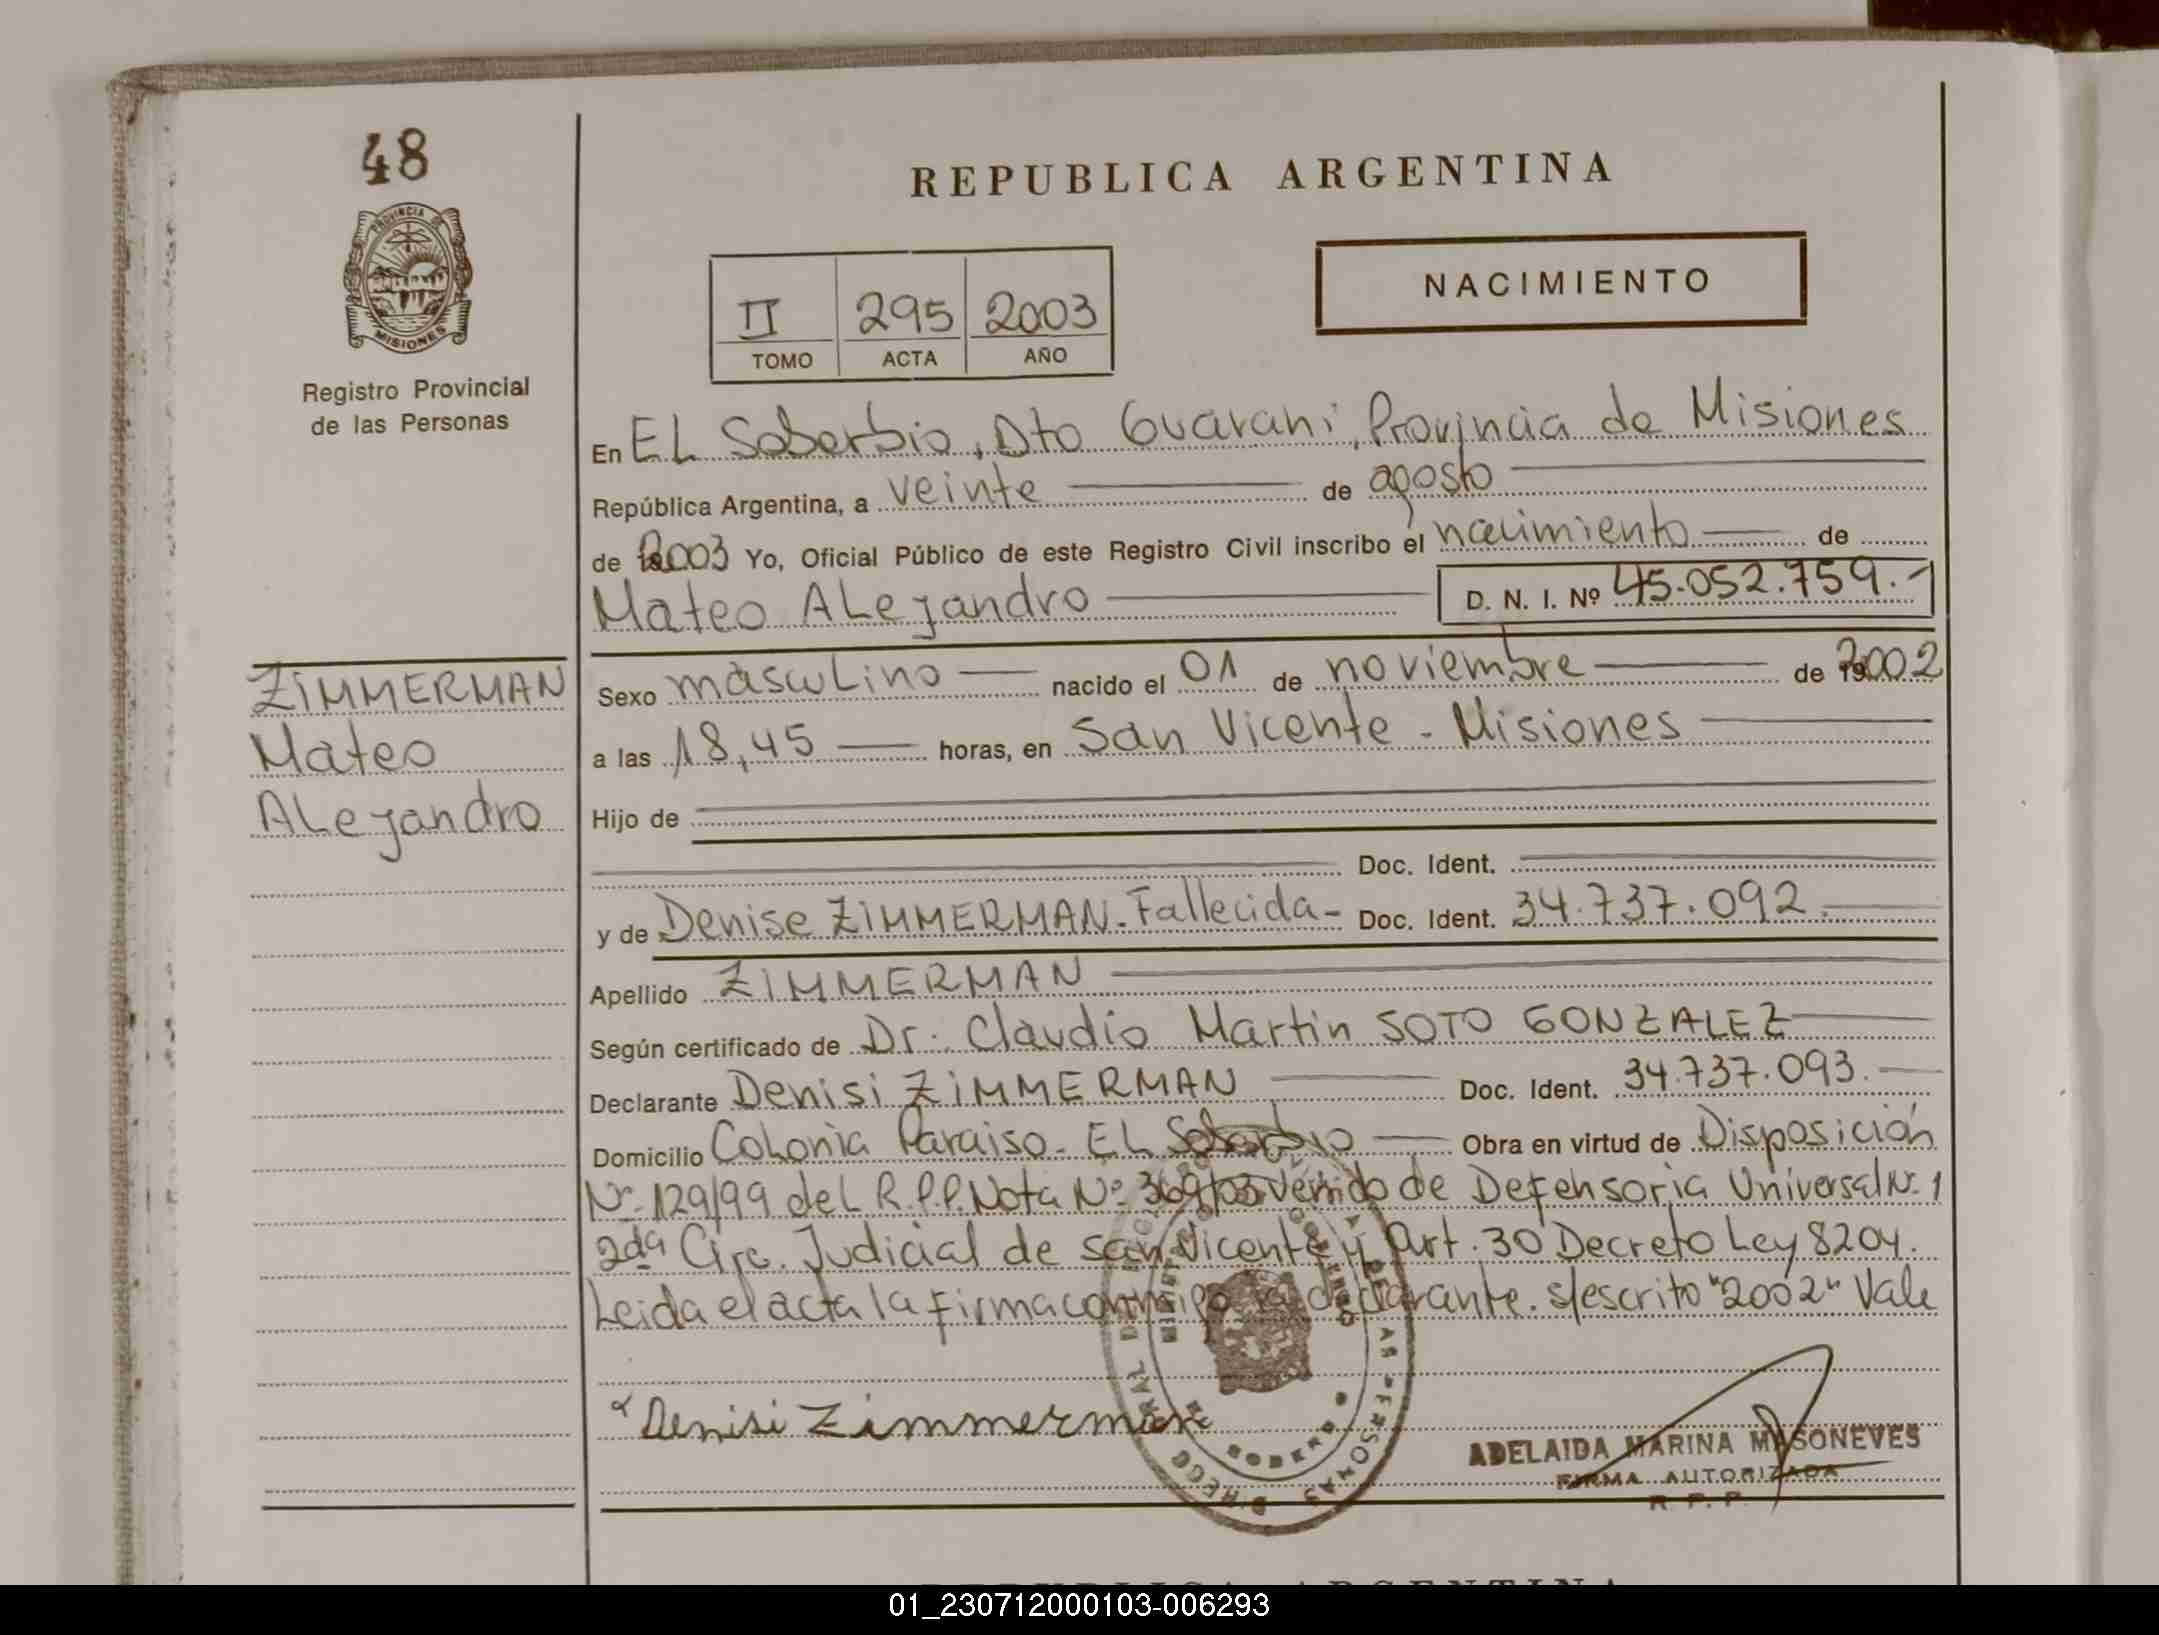 48
PROVINCIA DE
MISIONES
Registro Provincial
de las Personas
REPUBLICA ARGENTINA
NACIMIENTO
II 295 2003
TOMO ACTA AÑO
En EL Soberbio, Dto Guarani, Provincia de Misiones
República Argentina, a veinte de agosto
de 2003 Yo, Oficial Público de este Registro Civil inscribo el nacimiento de
Mateo ALejandro D. N. I. Nº 45.052.759.-
ZIMMERMAN
Mateo
ALejandro
Sexo mascuLino nacido el 01 de noviembre de 2002
a las 18,45 horas, en San Vicente - Misiones
Hijo de
Doc. Ident.
y de Denise ZIMMERMAN. Fallecida- Doc. Ident. 34.737.092.
Apellido ZIMMERMAN
Según certificado de Dr. Claudio Martin SOTO GONZALEZ
Declarante Denisi ZIMMERMAN Doc. Ident. 34.737.093.
Domicilio Colonia Paraiso- EL Soberbio Obra en virtud de Disposición
Nº 129/99 del R.P.P. Nota Nº 369/03 Venido de Defensoria Universal Nº 1
2da Circ. Judicial de San Vicente y Art. 30 Decreto Ley 8204.
Leida el acta la firma conmigo la declarante. s/escrito "2002" Vale
Denisi Zimmerman
ADELAIDA MARINA MASONEVES
FIRMA AUTORIZADA
R. P. P.
REPUBLICA ARGENTINA
01_230712000103-006293